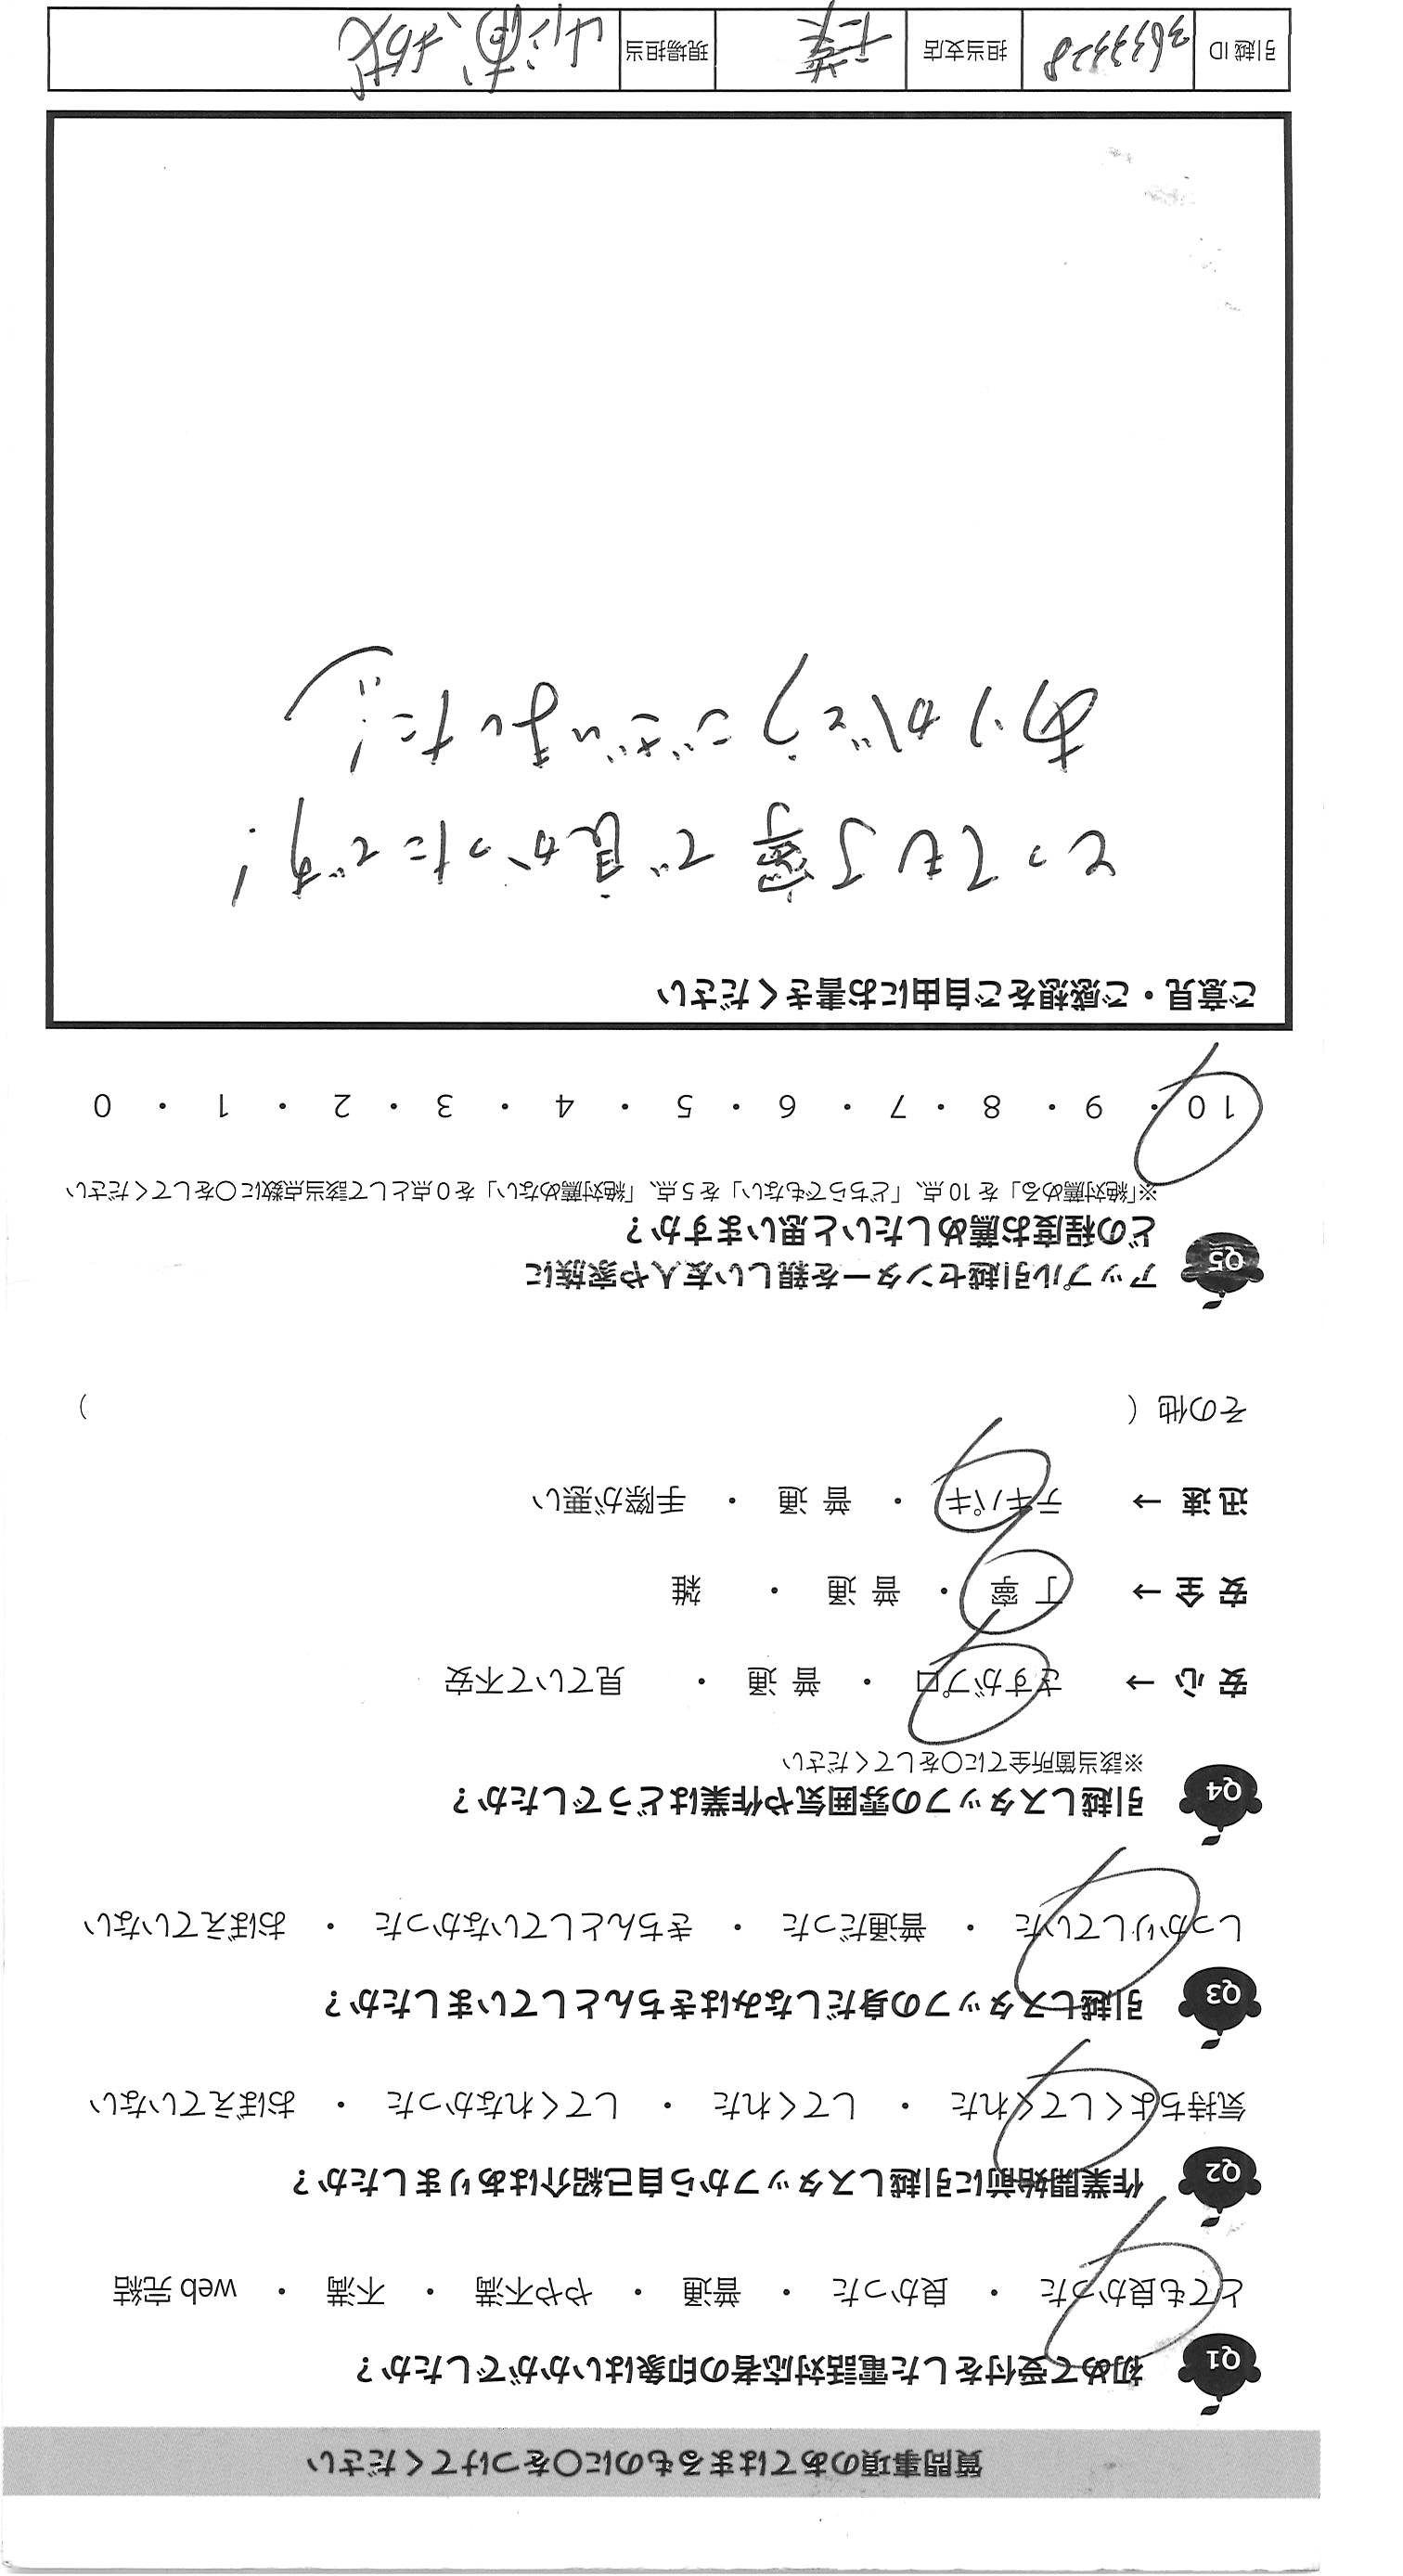 質問事項のあてはまるものに〇をつけてください
Q1 初めて受付をした電話対応者の印象はいかがでしたか？
とても良かった ・ 良かった ・ 普通 ・ やや不満 ・ 不満 ・ web 完結
Q2 作業開始前に引越しスタッフから自己紹介はありましたか？
気持ちよくしてくれた ・ してくれた ・ してくれなかった ・ おぼえていない
Q3 引越しスタッフの身だしなみはきちんとしていましたか？
しっかりしていた ・ 普通だった ・ きちんとしていなかった ・ おぼえていない
Q4 引越しスタッフの雰囲気や作業はどうでしたか？
※該当箇所全てに〇をしてください
安 心 → さすがプロ ・ 普 通 ・ 見ていて不安
安 全 → 丁 寧 ・ 普 通 ・ 雑
迅 速 → テキパキ ・ 普 通 ・ 手際が悪い
その他 （ ）
Q5 アップル引越センターを親しい友人や家族に
どの程度お薦めしたいと思いますか？
※「絶対薦める」を 10 点、「どちらでもない」を 5 点、「絶対薦めない」を 0 点として該当点数に〇をしてください
10 ・ 9 ・ 8 ・ 7 ・ 6 ・ 5 ・ 4 ・ 3 ・ 2 ・ 1 ・ 0
ご意見・ご感想をご自由にお書きください
とっても丁寧で良かったです！
ありがとうございました！
引越 ID 担当支店 現場担当